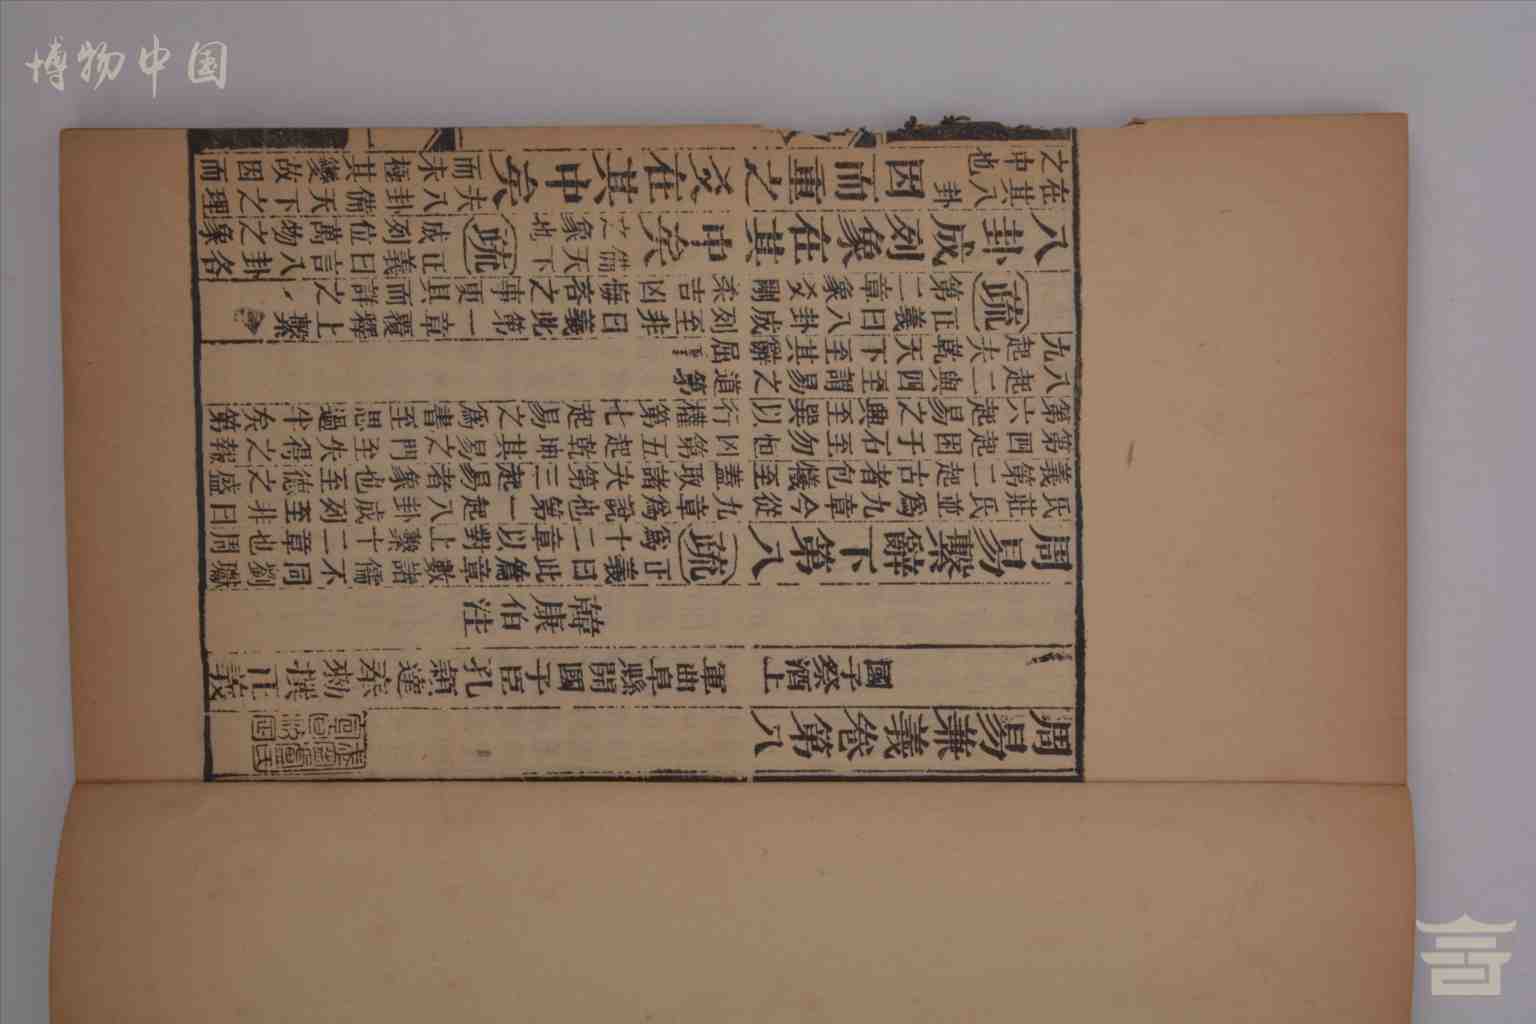 周易兼義卷第八
國子祭酒上護軍曲阜縣開國子臣孔穎達奉勑撰正義
韓康伯注
周易繫辭下第八 疏 正義曰此篇章數諸儒不同劉瓛
爲十二章以對上繫十二章也周
氏莊氏並爲九章今從九章爲說也第一起八卦成列至非曰
義第二起古者包犧至蓋取諸夬第三起易者象也至德之盛
第四起困于石至勿恤凶第五起乾坤其易之門至失得之報
第六起易之興至巽以行權第七起易之爲書至思過半矣第
八起二與四至謂易之道第
九起夫乾天下至其辭屈
疏 正義曰八卦成列至非曰義此第一章覆釋上繫
第二章象爻剛柔吉凶悔吝之事更具而詳之
八卦成列象在其中矣 備天下
之象 疏 正義曰言八卦各
成列位萬物之象
在其八卦
之中也
因而重之爻在其中矣 夫八卦備天下之理
而未極其變故因而